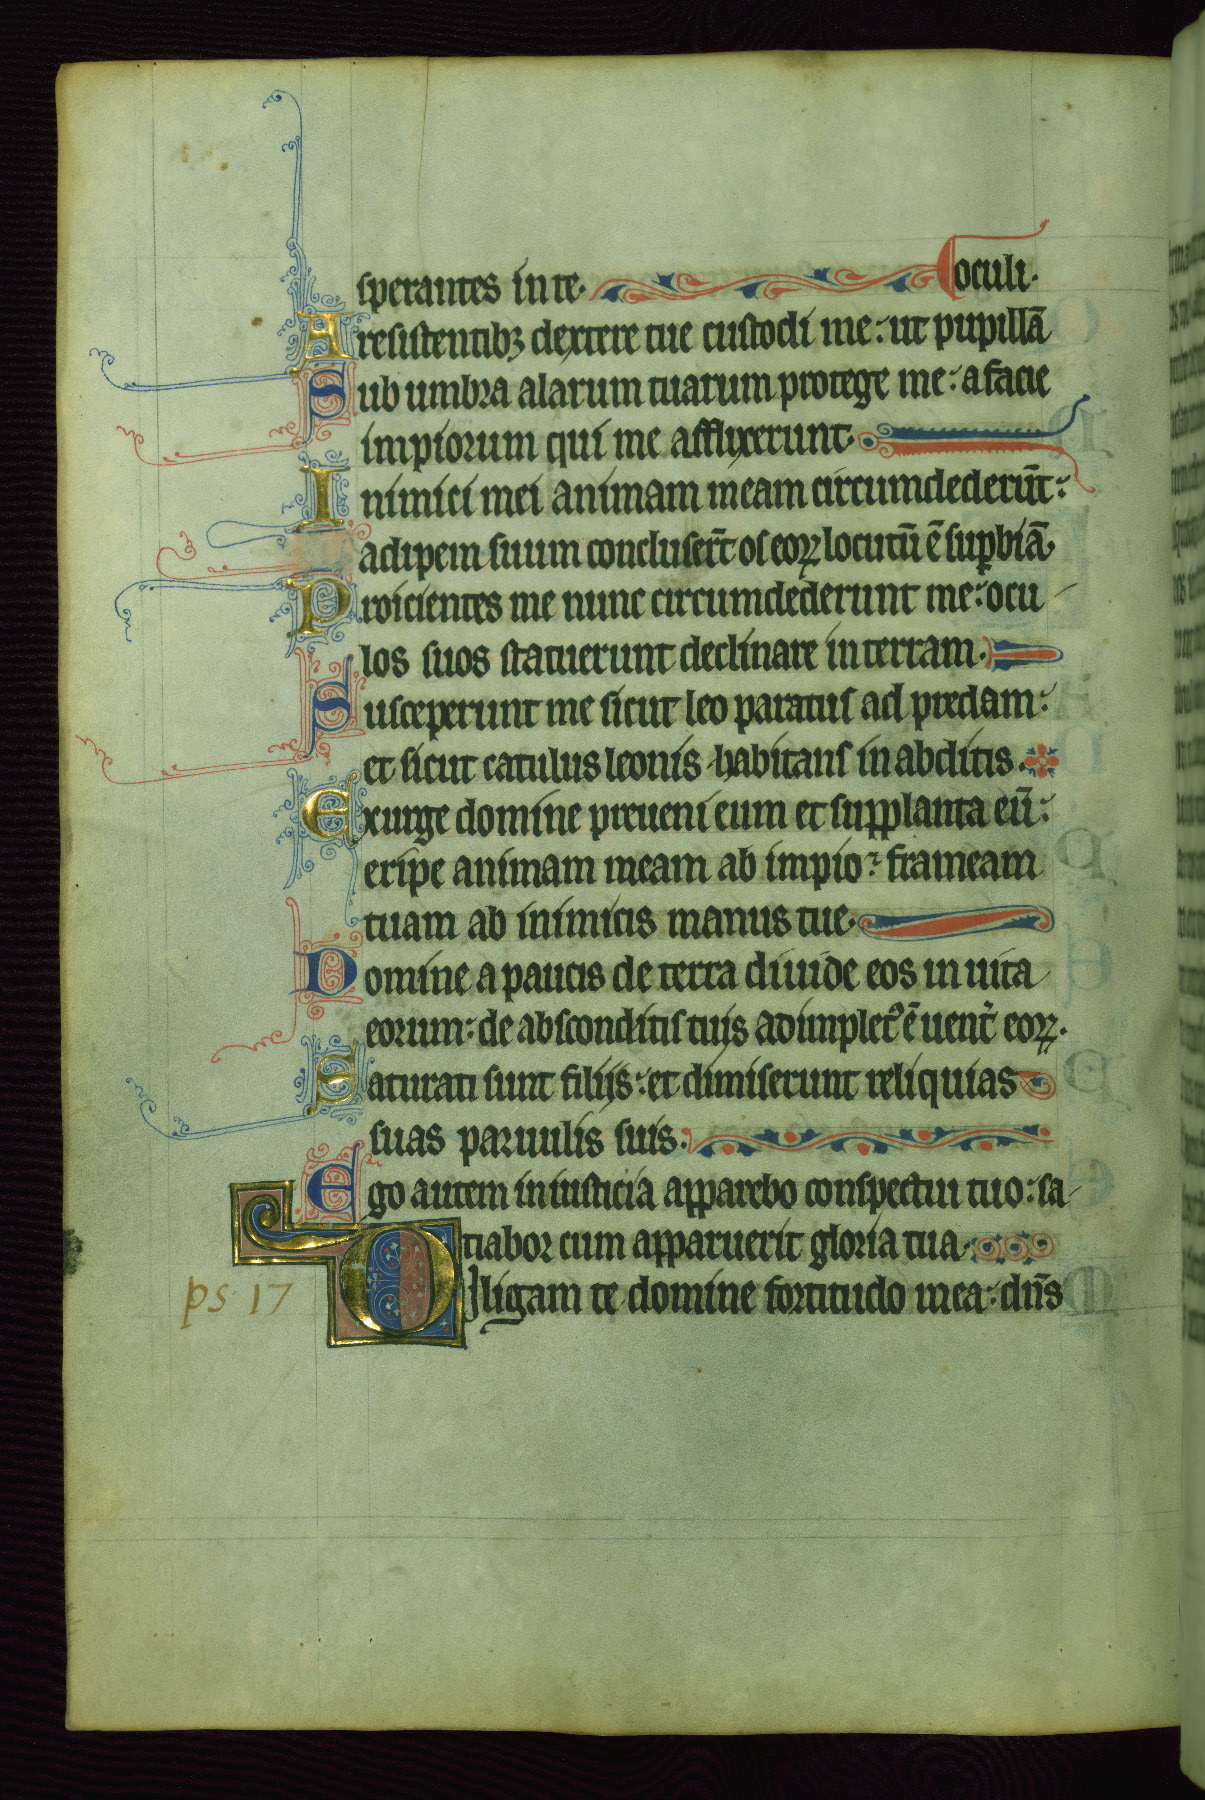 sperantes in te. oculi.
A resistentibꝫ dextere tue custodi me: ut pupillā
Sub umbra alarum tuarum protege me: a facie
impiorum qui me afflixerunt.
Inimici mei animam meam circumdederūt:
adipem suum concluser̄t os eoꝝ locutū ē suꝑbiā
Proicientes me nunc circumdederunt me: ocu
los suos statuerunt declinare in terram.
Susceperunt me sicut leo paratus ad predam:
et sicut catulus leonis habitans in abditis.
Exurge domine preueni eum et supplanta eū:
eripe animam meam ab impio: frameam
tuam ab inimicis manus tue.
Domine a paucis de terra diuide eos in uita
eorum: de absconditis tuis adimplet᷒ ē uent̄ eoꝝ.
Saturati sunt filijs: et dimiserunt reliquias
suas paruulis suis.
Ego autem in iusticia apparebo conspectui tuo: sa
tiabor cum apparuerit gloria tua.
Diligam te domine fortitudo mea: dn̄s
ps 17